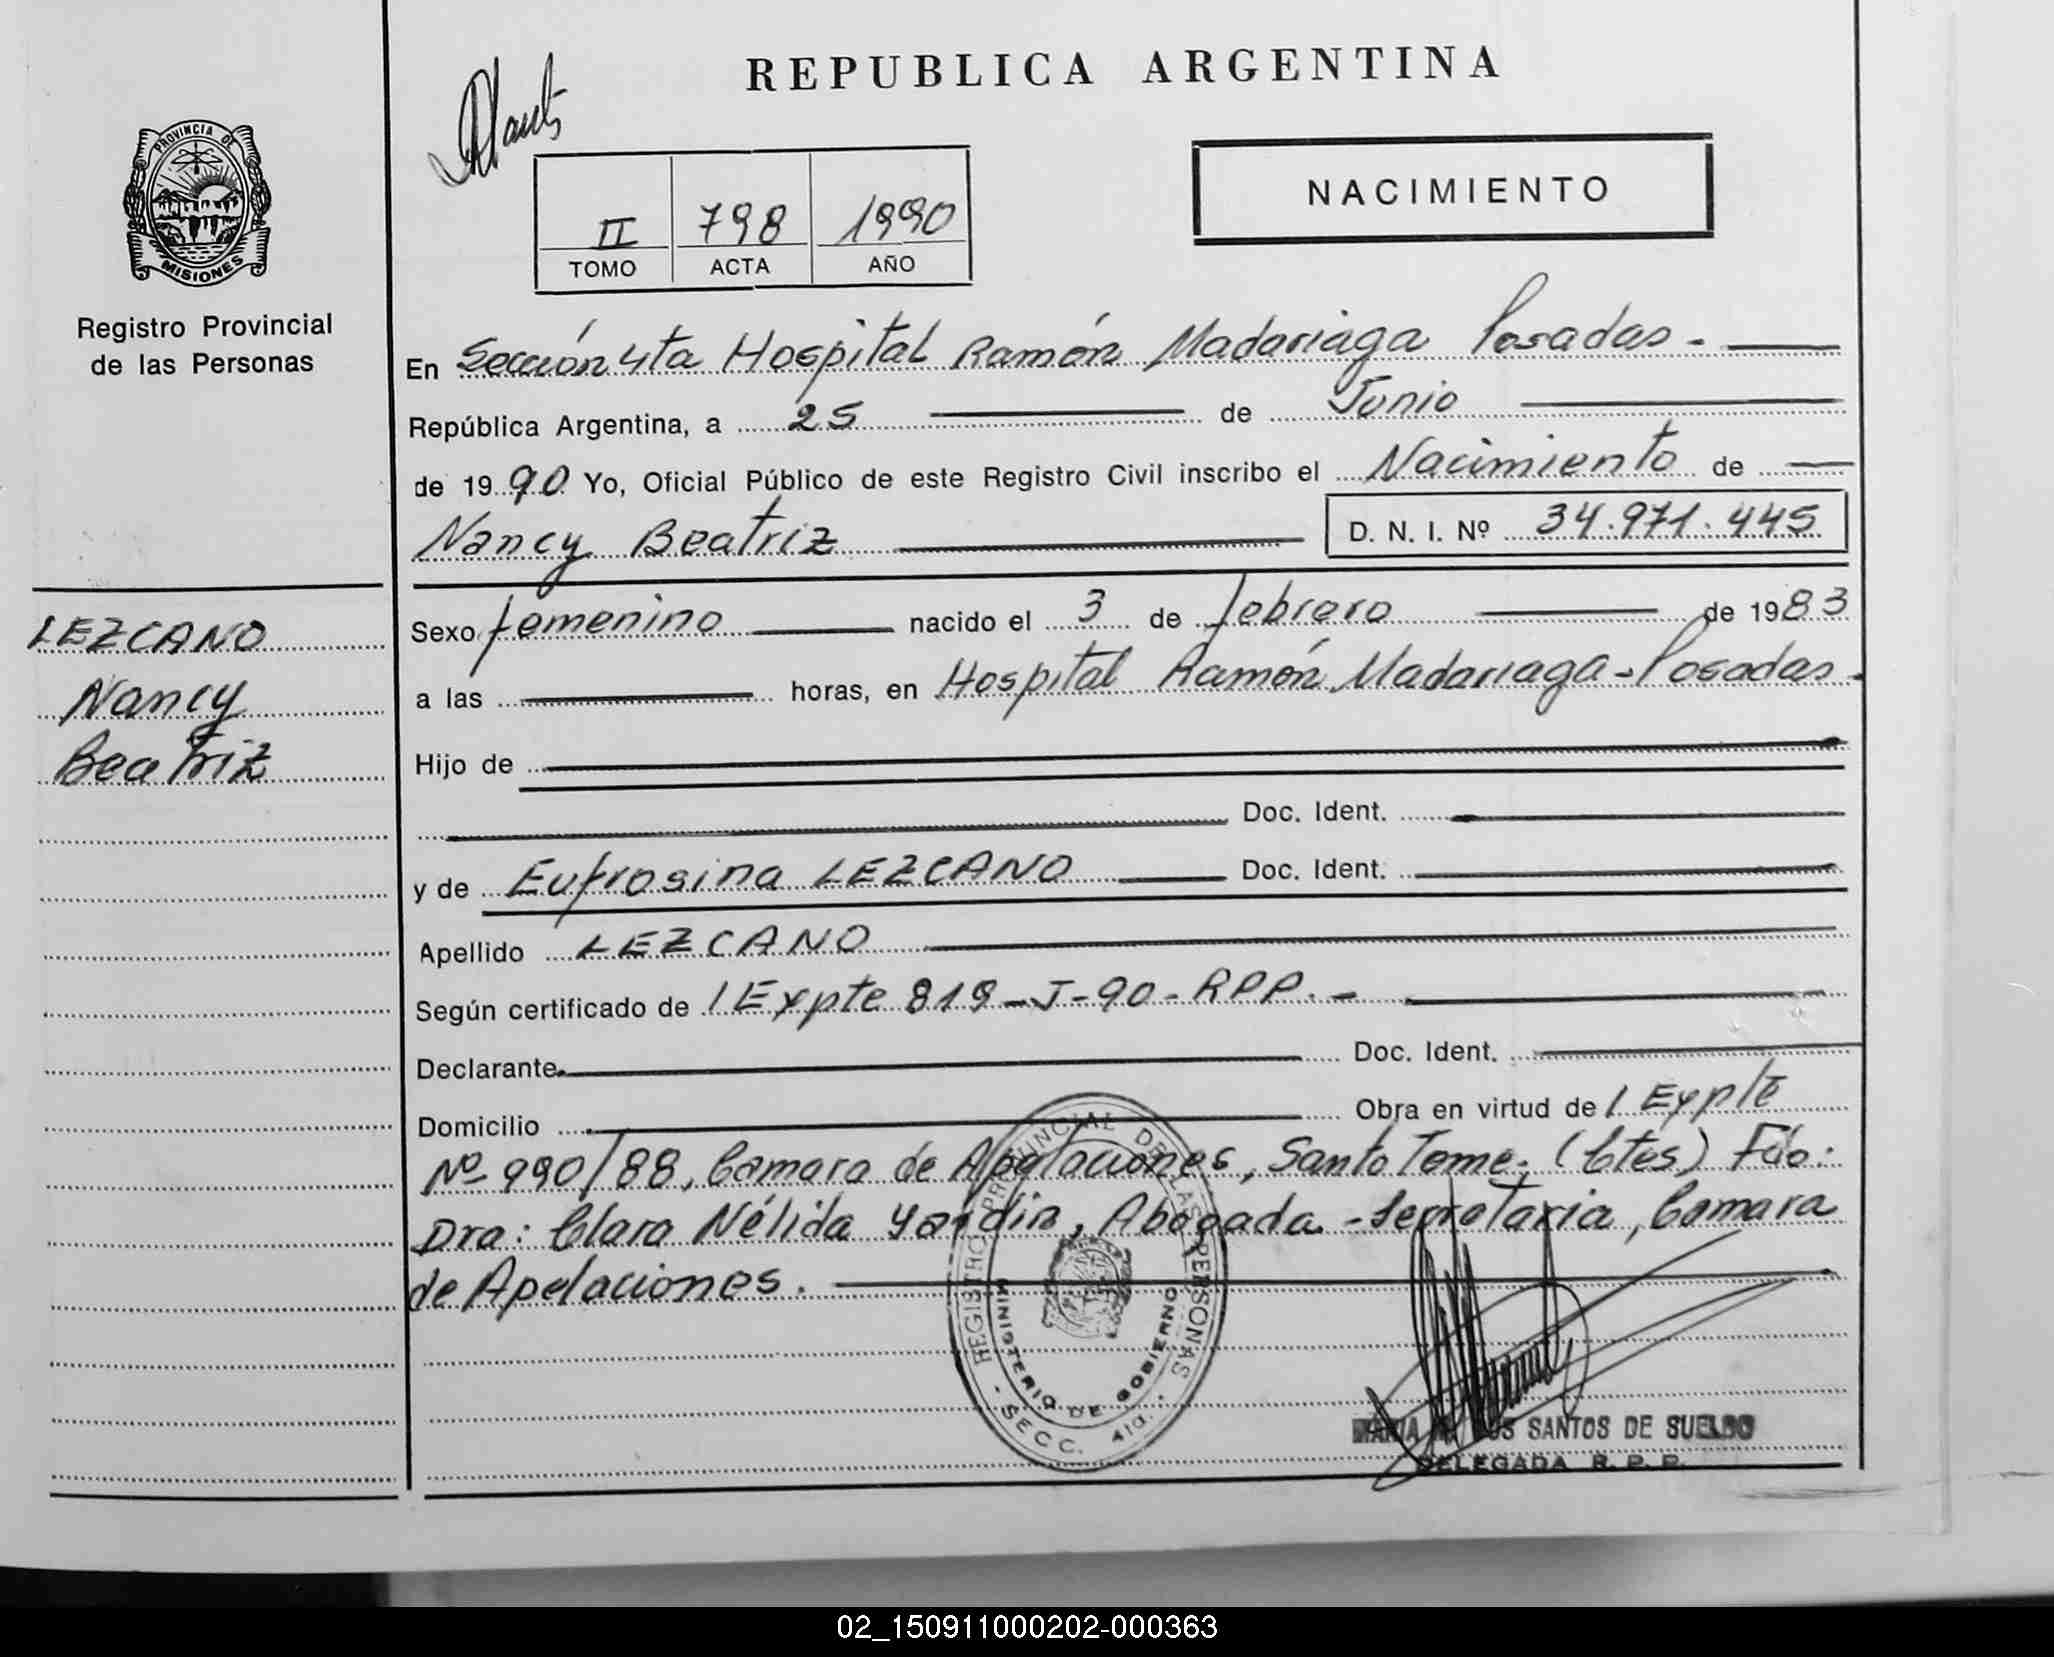 REPUBLICA ARGENTINA
NACIMIENTO
II 798 1990
TOMO ACTA AÑO
PROVINCIA DE
MISIONES
Registro Provincial
de las Personas
En Sección 4ta Hospital Ramón Madariaga Posadas.-
República Argentina, a 25 de Junio
de 1990 Yo, Oficial Público de este Registro Civil inscribo el Nacimiento de
Nancy Beatriz D. N. I. Nº 34.971.445
LEZCANO
Nancy
Beatriz
Sexo femenino nacido el 3 de febrero de 1983
a las horas, en Hospital Ramón Madariaga - Posadas.
Hijo de
Doc. Ident.
y de Eufrosina LEZCANO Doc. Ident.
Apellido LEZCANO
Según certificado de / Expte 819-J-90-RPP.-
Declarante Doc. Ident.
Domicilio Obra en virtud de / Expte
Nº 990/88, Camara de Apelaciones, Santo Tome. (Ctes) Fdo:
Dra: Clara Nélida Abogada - Secretaria, Camara
de Apelaciones.
REGISTRO PROVINCIAL DE LAS PERSONAS
MINISTERIO DE GOBIERNO
- SECC. 4ta. -
MARIA SANTOS DE
DELEGADA R. P. P.
02_150911000202-000363